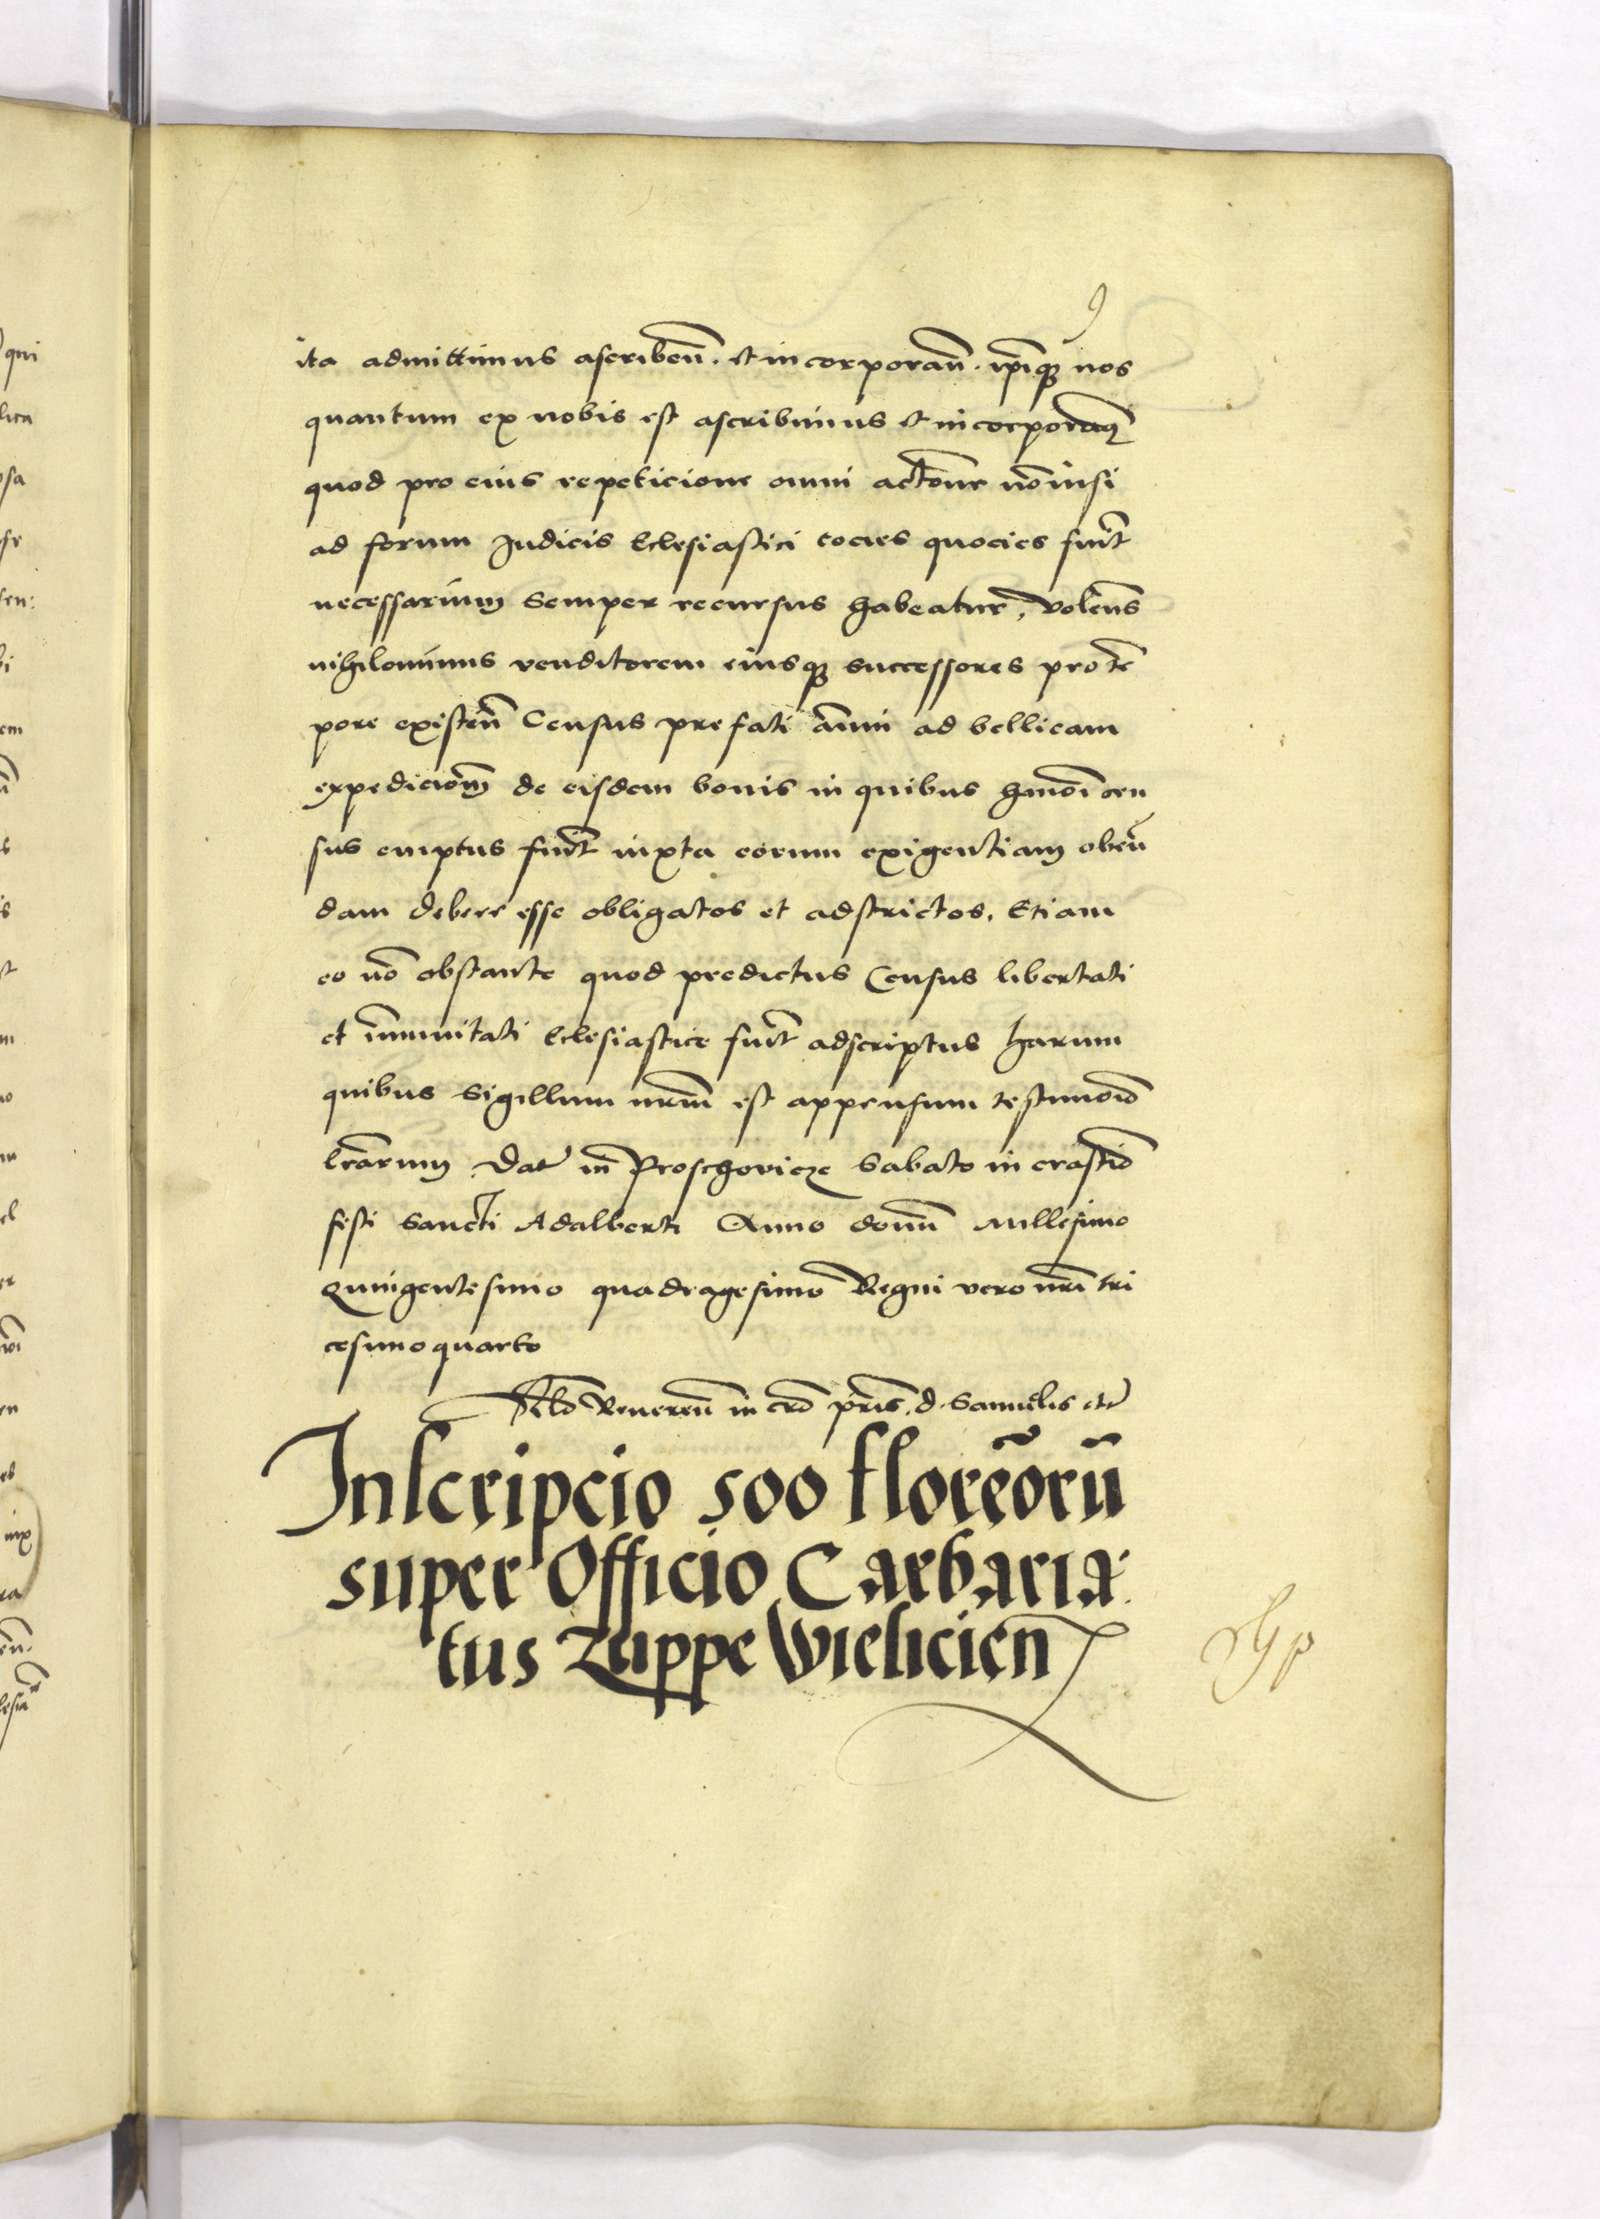 9
ita admittimus ascribeñ. et incorporañ. ip̃iq3 nos
quantum ex nobis est ascribimus et incorporam9
quod pro eius repeticione omni acc̃one nõ nisi
ad forum Judicis Ecclesiastici tocies quocies fuerit
necessarium semper recursus habeatur, volens
nihilominus venditorem eiusq3 successores pro tem̃
pore existeñ Census prefati anni ad bellicam
expedicionem de eisdem bonis in quibus hm̃oi cen
sus emptus fuerit iuxta eorum exigentiam obeũ
dam debere esse obligatos et adstrictos, Etiam
eo nõ obstante quod predictus Census libertati
et im̃unitati Ecclesiastice fuerit adscriptus harum
quibus Sigillum nr̃um est appensum testimonio
lr̃arum Dat̃ in Proschovicze Sabato in crastino
festi Sancti Adalberti Anno domini Millesimo
Quingentesimo quadragesimo Regni vero nr̃i tri
cesimo quarto
Rel̃o Reverendi in cr̃o pr̃is d. Samuelis etc
Inscripcio 500 florẽorũ
super Officio Carbaria
tus Zuppe Wieliciẽn